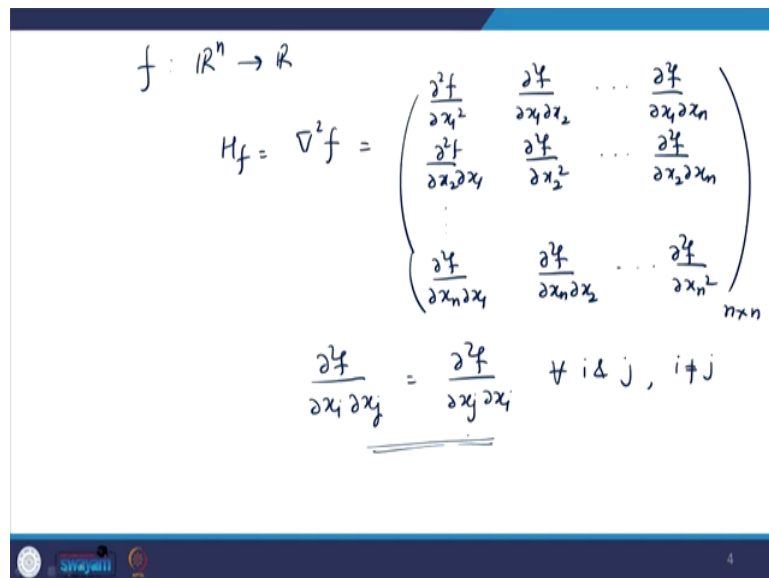 f : ℝⁿ → ℝ
H_f = ∇²f = ( ∂²f/∂x₁² ∂²f/∂x₁∂x₂ ... ∂²f/∂x₁∂xₙ
∂²f/∂x₂∂x₁ ∂²f/∂x₂² ... ∂²f/∂x₂∂xₙ
⋮
∂²f/∂xₙ∂x₁ ∂²f/∂xₙ∂x₂ ... ∂²f/∂xₙ² ) n×n
∂²f/∂xᵢ∂xⱼ = ∂²f/∂xⱼ∂xᵢ ∀ i & j , i ≠ j
swayam 4